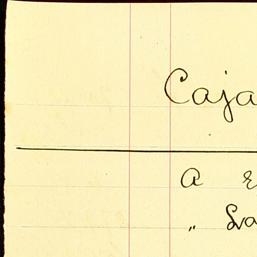 Caja
A
" La